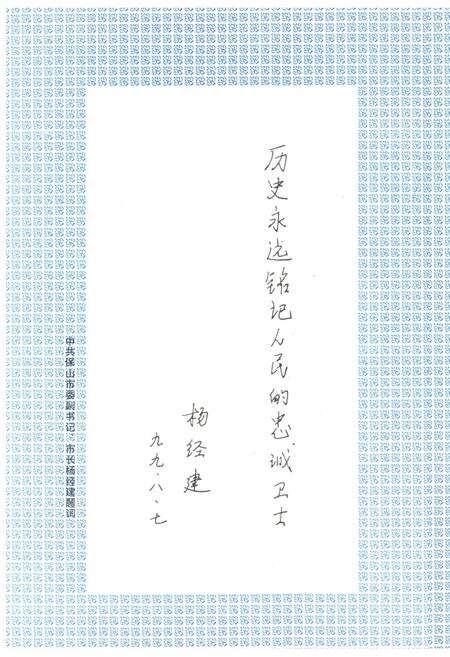 历史永远铭记人民的忠诚卫士
杨经建
九九.八.七
中共保山市委副书记、市长杨经建题词